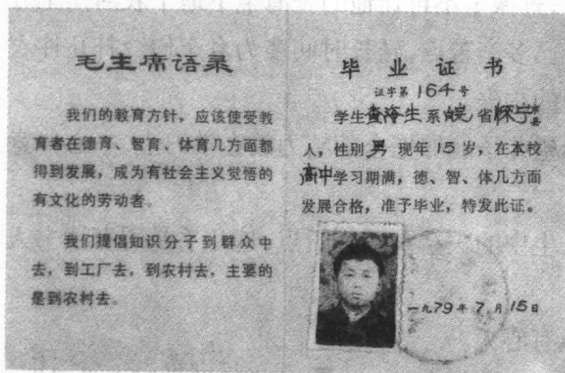 毛主席语录
我们的教育方针，应该使受教
育者在德育、智育、体育几方面都
得到发展，成为有社会主义觉悟的
有文化的劳动者。
我们提倡知识分子到群众中
去，到工厂去，到农村去，主要的
是到农村去。
毕业证书
证字第164号
学生查海生系皖省怀宁市县
人，性别男现年15岁，在本校
高中学习期满，德、智、体几方面
发展合格，准予毕业，特发此证。
一九79年7月15日